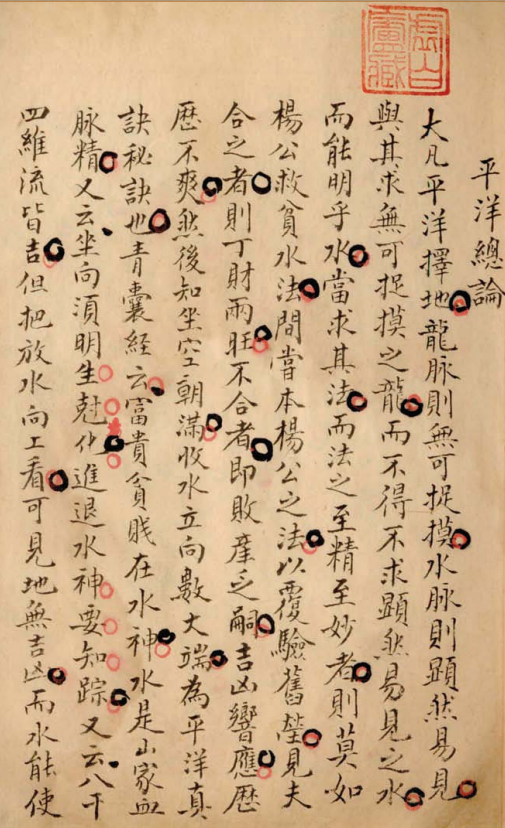 虛白廬藏
平洋總論
大凡平洋擇地龍脉則無可捉摸水脉則顯然易見
與其求無可捉摸之龍而不得不求顯然易見之水
而能明乎水當求其法而法之至精至妙者則莫如
楊公救貧水法間當本楊公之法以覆驗舊塋見夫
合之者則丁財兩旺不合者即敗產乏嗣吉凶響應歷
歷不爽然後知坐空朝滿收水立向數大端為平洋真
訣秘訣也青囊經云富貴貧賤在水神水是山家血
脉精又云坐向須明生尅化進退水神要知踪又云八干
四維流皆吉但把放水向上看可見地無吉凶而水能使